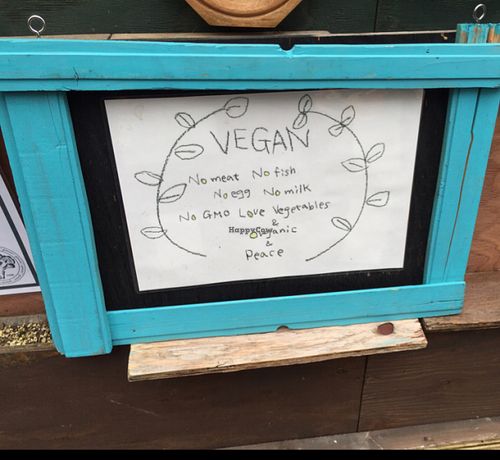 VEGAN
No meat No fish
No egg No milk
No GMO Love Vegetables
&
HappyCow
Organic
&
Peace